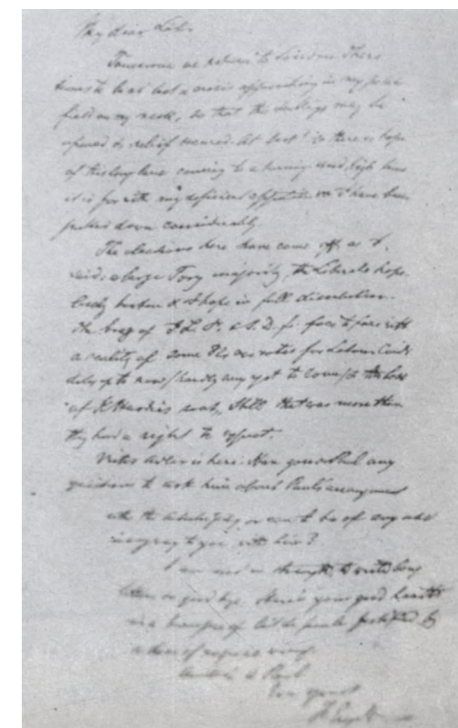 My dear Löhr,
Tomorrow we return to London. There
seems to be at last a crisis approaching in my potato
field on my neck, so that the swellings may be
opened & relief secured. At last! so there is hope
of this long lane coming to a turning. And high time
it is for with my deficient appetite &c I have been
pulled down considerably.
The elections here have come off as I
said: a large Tory majority, the Liberals hope-
lessly beaten & I hope in full dissolution.
The brag of I.L.P. & S.D.F. face to face with
a reality of some votes for Labour Candi-
dates up to now (hardly any yet to come) & the loss
of K. Hardie's seat. Still that was more than
they had a right to expect.
Victor Adler is here. Have you or Paul any
questions to ask him about Paul's arrangement
with the or can I be of any use
in any way to you with him?
I am not in strength to write long
letters, so good bye. Here's your good health
in a bumper of lait de poule fortified by
a dose of cognac vieux.
Paul
Ever yours
F. Engels